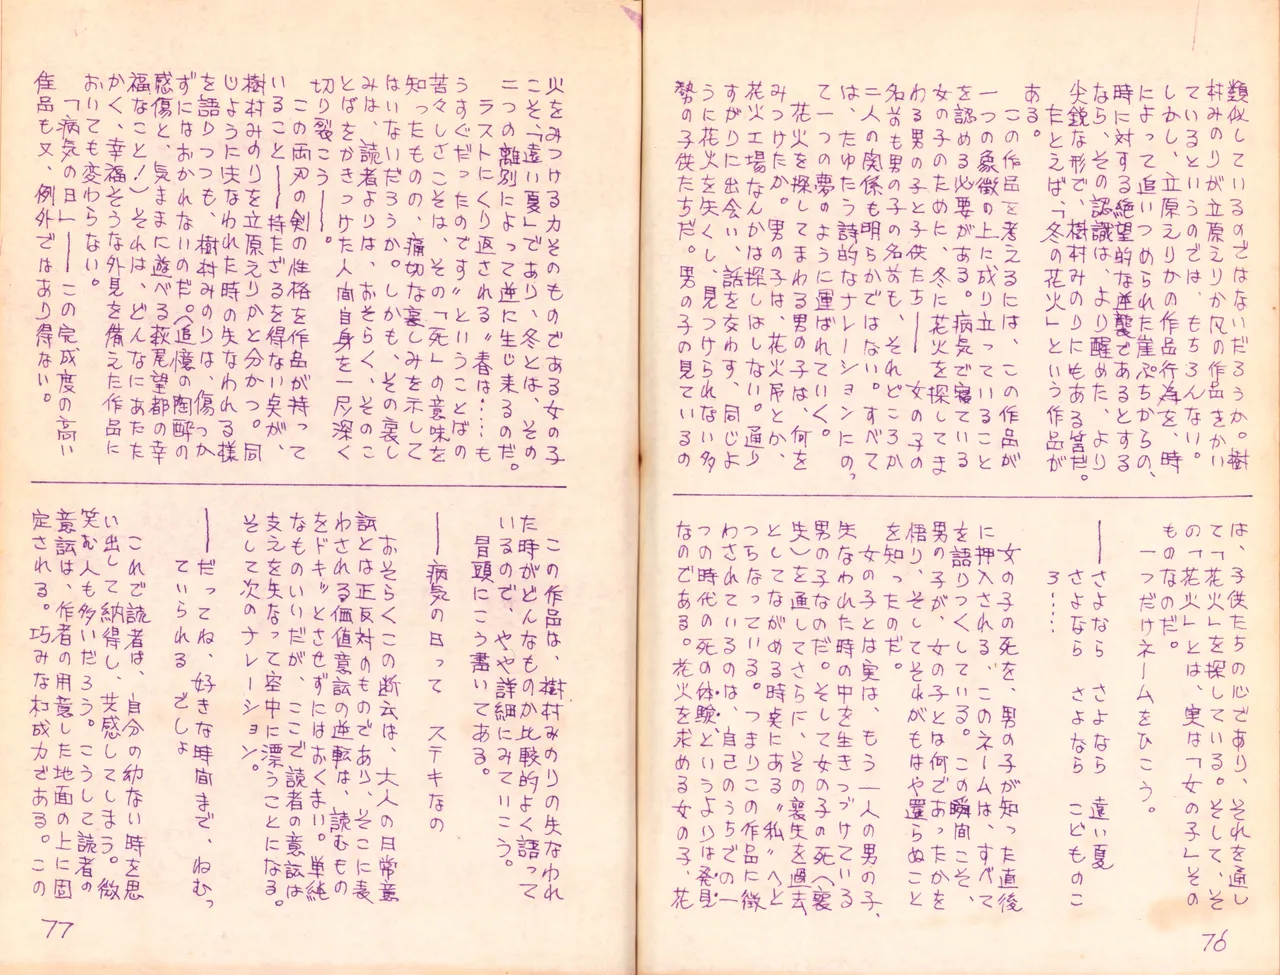 類似しているのではないだろうか。樹
村みのりが立原えりか凡の作品をかい
ているというのでは、もちろんない。
しかし、立原えりかの作品行為を、時
によって追いつめられた崖ぷちからの、
時に対する絶望的な逆襲であるとする
なら、その認識は、より醒めた、より
尖鋭な形で、樹村みのりにもある筈だ。
たとえば、「冬の花火」という作品が
ある。
この作品を考えるには、この作品が
一つの象徴の上に成り立っていること
を認める必要がある。病気で寝ている
女の子のために、冬に花火を探してま
わる男の子と子供たち――女の子の
名前も男の子の名前も、それどころか
二人の関係も明らかではない。すべて
は、たゆたう詩的なナレーションにの っ
て一つの夢のように運ばれていく。
花火を探してまわる男の子は、何を
みつけたか。男の子は、花火吊とか、
花火工場なんかは探しはしない。通り
すがりに出会い、話を交わす、同じよ
うに花火を失くし、見つけられない多
勢の子供たちだ。男の子の見ているの
は、子供たちの心であり、それを通し
て「花火」を探している。そして、そ
の「花火」とは、実は「女の子」その
ものなのだ。
一つだけネームをひこう。
――さよなら さよなら 遠い夏
さよなら さよなら こどものこ
ろ‥‥
女の子の死を、男の子が知った直後
に押入される、このネームは、すべて
を語りつくしている。この瞬間こそ、
男の子が、女の子とは何であったかを
悟り、そしてそれがもはや還らぬこと
を知ったのだ。
女の子とは実は、もう一人の男の子、
失なわれた時の中を生きつづけている
男の子なのだ。そして女の子の死へ喪
失)を通してさらに、その喪失を過去
としてながめる時点にある〝私〟へと
つらなっている。つまりこの作品に徴
わされているのは、自己のうちでの一
つの時代の死の体験、というよりは発見
なのである。花火を求める女の子、花
76
火をみつける力そのものである女の子
こそ、「遠い夏」であり、冬とは、その
二つの離別によって逆に生じ来るのだ。
ラストにくり返される〝春は‥‥も
うすぐだったのです〟ということばの
苦々しさこそは、その「死」の意味を
知ったものの、痛切な哀しみを示して
はいないだろうか。しかも、その哀し
みは、読者よりは、おそらく、そのこ
とばをかきつけた人間自身を一尺深く
切り裂こう――。
この両刃の剣の性格を作品が持って
いること――持たざるを得ない点が、
樹村みのりを立原えりかと分かつ。同
じようにうしなわれた時の失なわれる様
を語りつつも、樹村みのりは、傷つか
ずにはおかれないのだ。へ追憶の陶酔の
感傷と、気ままに遊べる萩尾望都の幸
福なこと!)それは、どんなにあたた
かく、幸福そうな外見を備えた作品に
おいても変わらない。
「病気の日」――この完成度の高い
佳品も又、例外ではあり得ない。
この作品は、樹村みのりの失なわれ
た時がどんなものか比較的よく語って
いるので、やや詳細にみていこう。
冒頭にこう書いてある。
――病気の日って ステキなの
おそらくこの断云は、大人の日常意
識とは正反対のものであり、そこに表
わされる価値意識の逆転は、読むもの
をドキッとさせずにはおくまい。単純
なものいいだが、ここで読者の意識は
支えを失なって空中に漂うことになる。
そして次のナレーション。
――だってね、好きな時間まで、ねむっ
ていられる でしょ
これで読者は、自分の幼ない時を思
い出して納得し、共感してしまう。微
笑む人も多いだろう。こうして読者の
意識は、作者の用意した地面の上に固
定される。巧みな构成力である。この
77